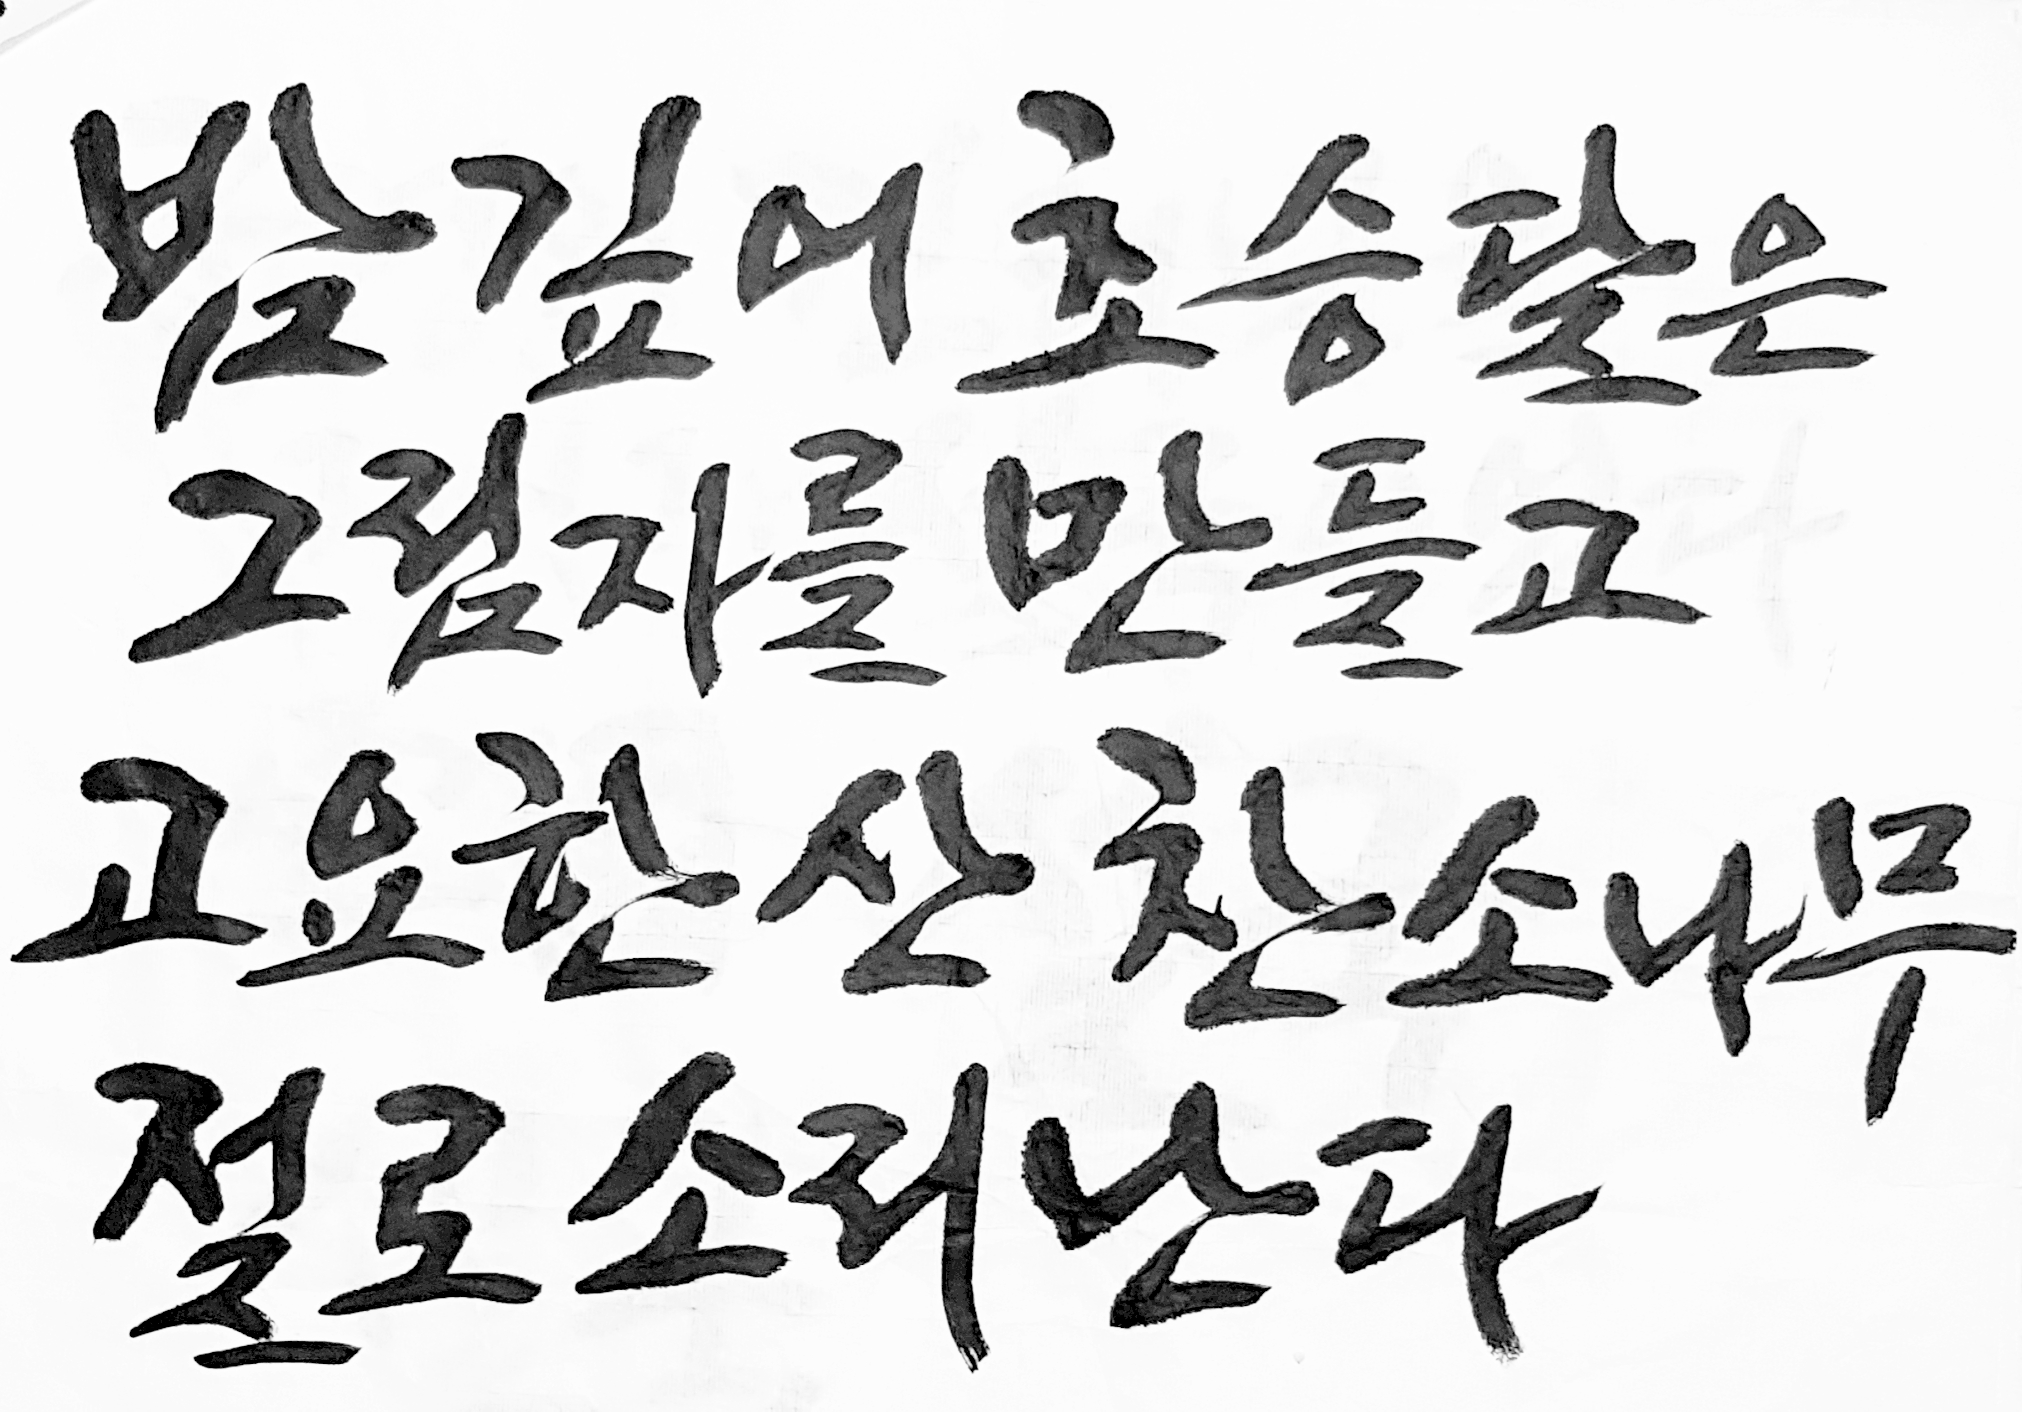 밤 깊어 초승달은
그림자를 만들고
고요한 산 찬 소나무
절로 소리 난다